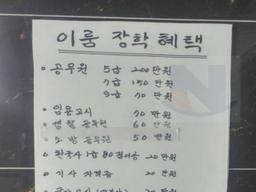 이룸 장학 혜택
• 공무원 5급 200 만원
7급 150 만원
9급 70 만원
• 임용고시 70 만원
• 경찰 공무원 60 만원
• 소방 공무원 50 만원
• 한국사 1급 80점이상 20 만원
• 기사 자격증 20 만원